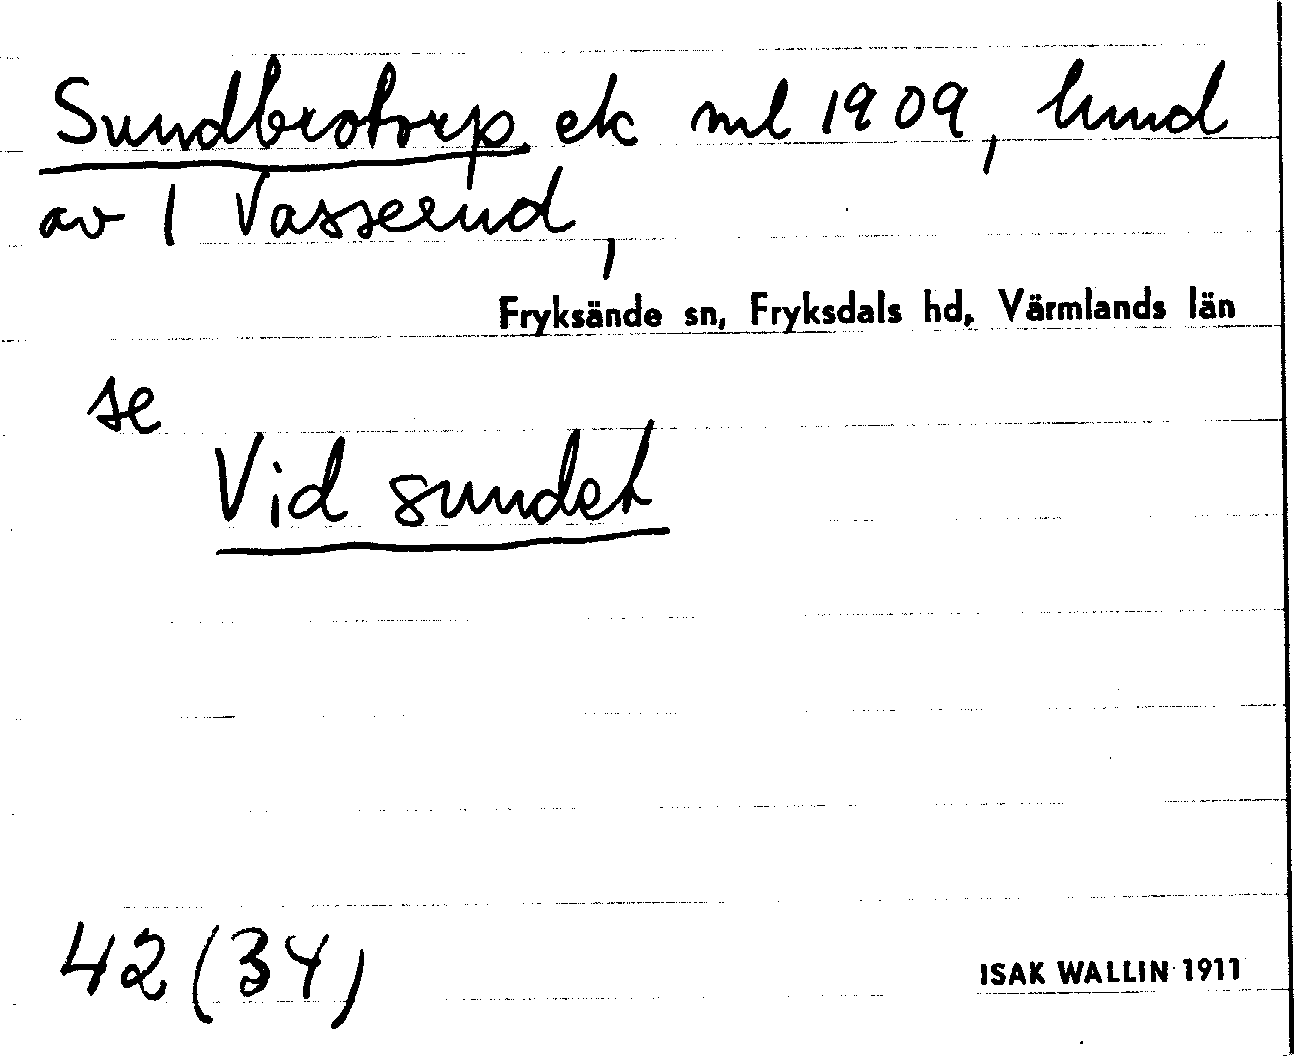 Sundbrotorp ek ml 1909, lund
av 1 Vasserud,
Fryksände sn, Fryksdals hd, Värmlands län
se
Vid sundet
42 (34)
ISAK WALLIN 1911